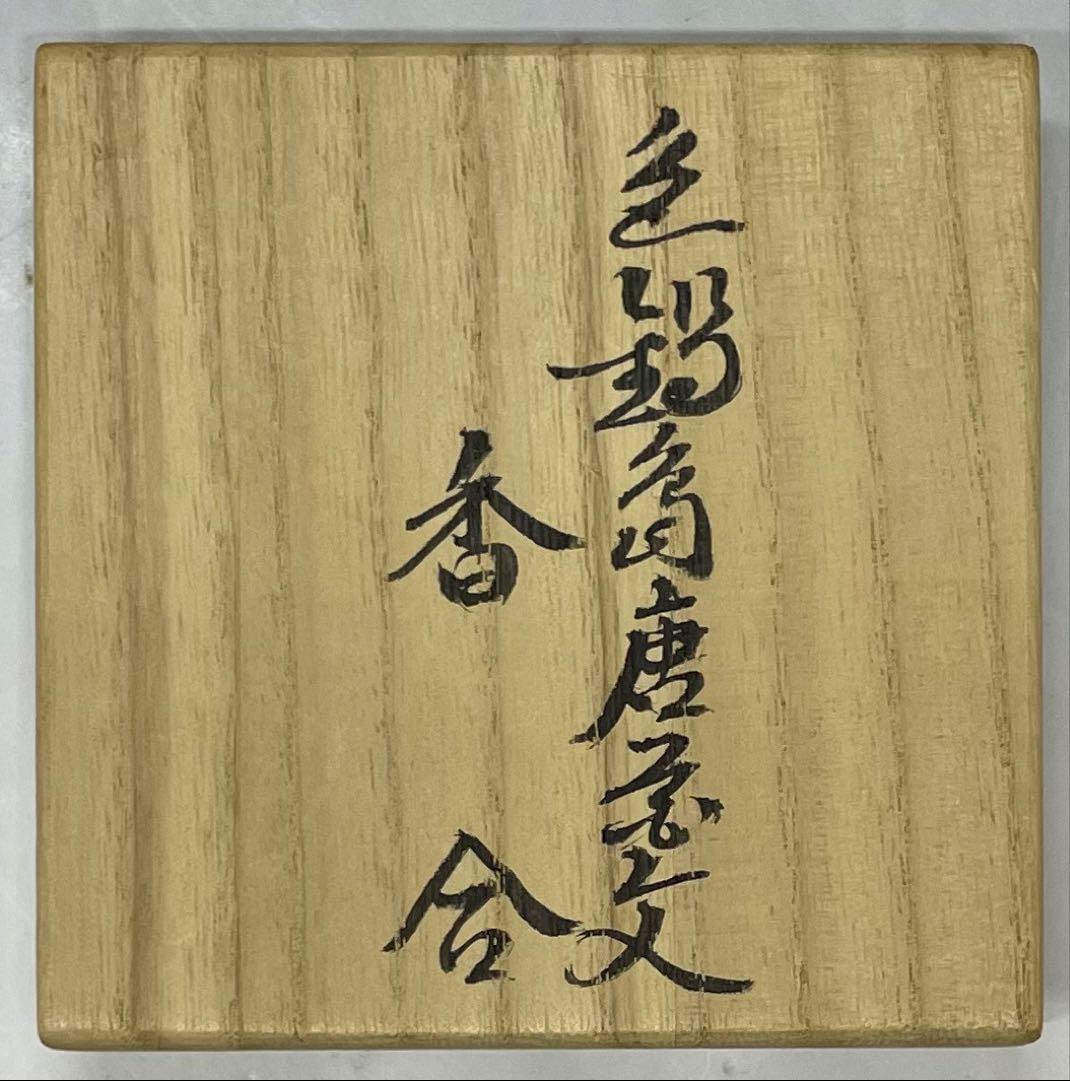 色鍋島唐花文
香合